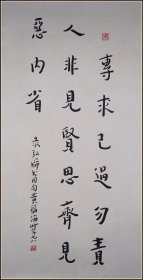 專求己過勿責
人非見賢思齊見
惡內省